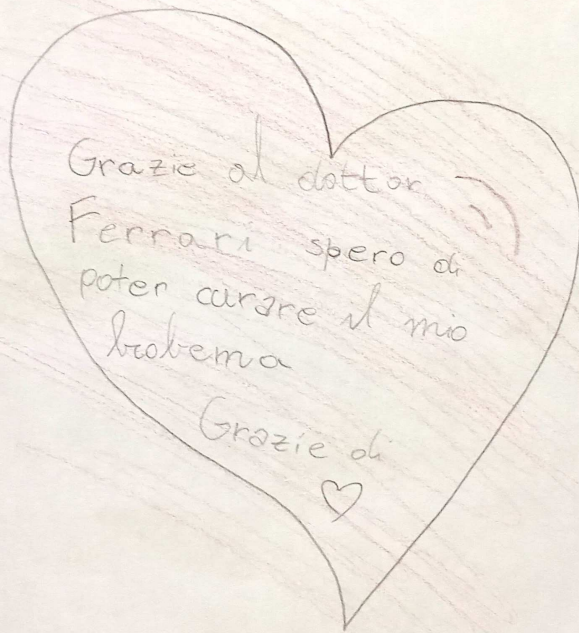 Grazie al dottor
Ferrari spero di
poter curare il mio
brobema
Grazie di